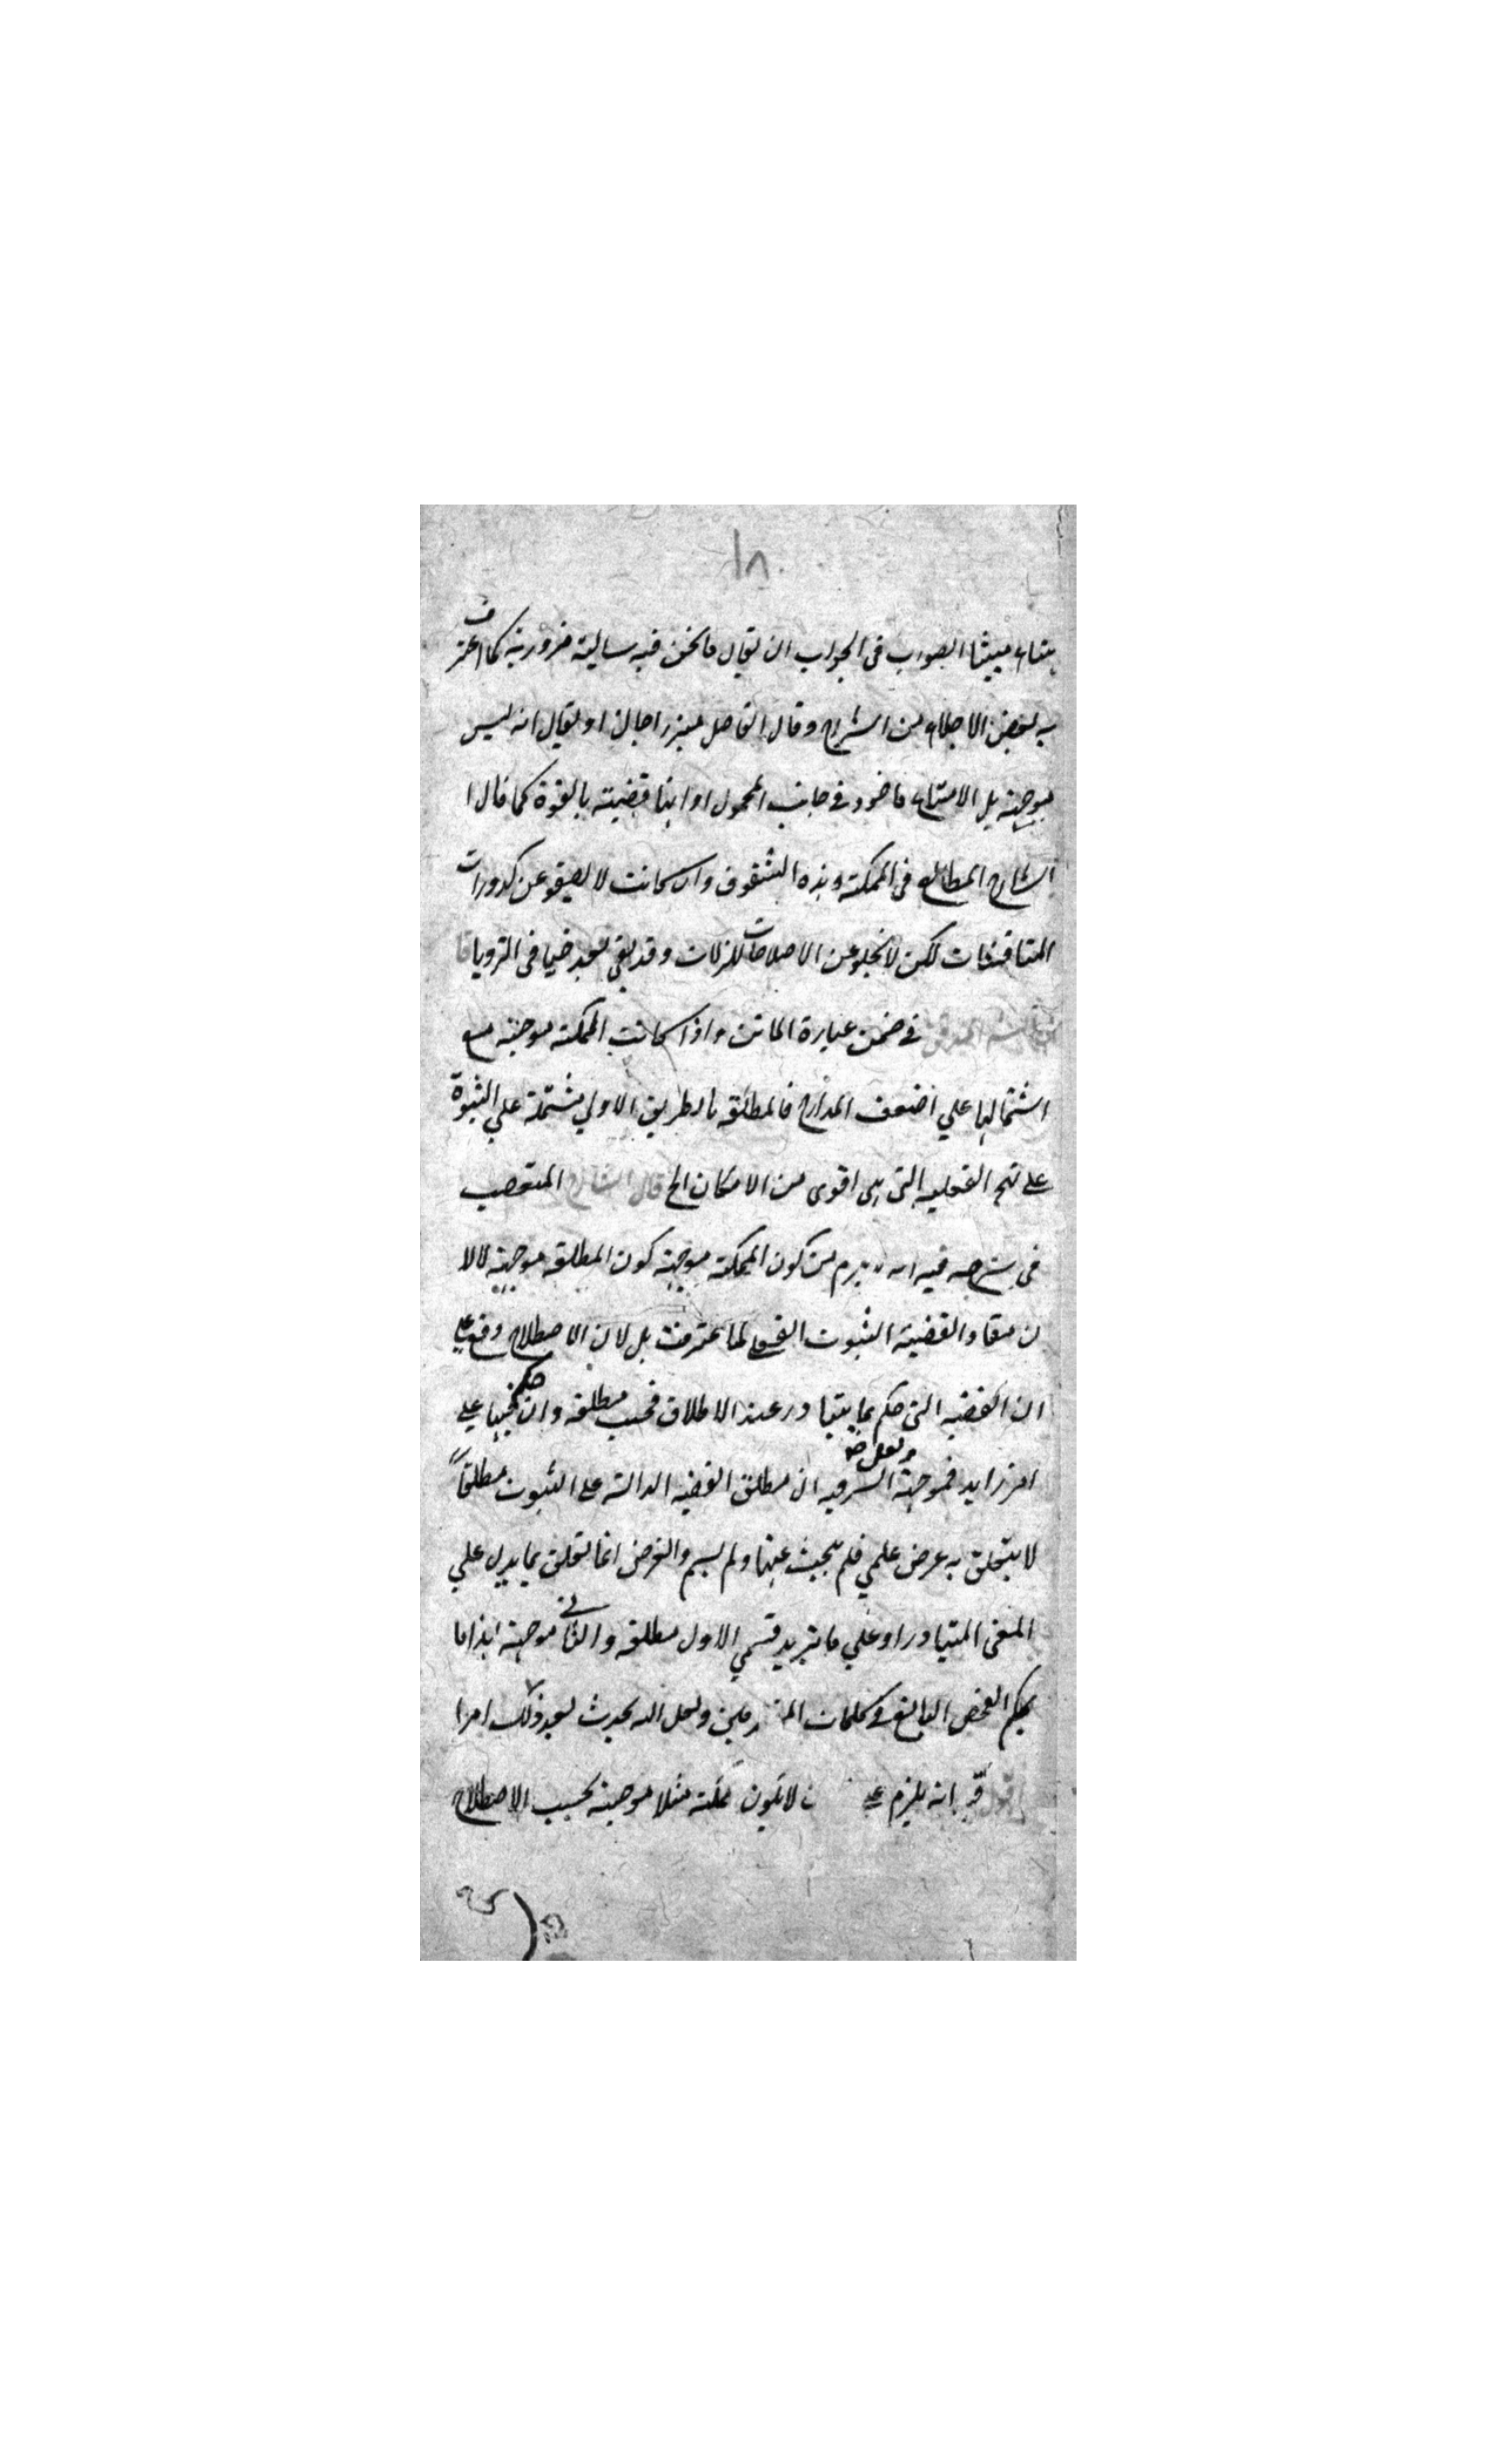 ١٨
الصواب فى الجواب ان يقال ما نحن فيه سالبة ضرورية كما اعترف
به بعض الاجلاء من الشراح وقال الفاضل ميرزاجان او يقال انه ليس
بموجهة بل الامتناع ماخوذ فى جانب المحمول او انها قضية بالقوة كما قال ا
لشارح المطالع فى الممكنة وهذه الشقوق وان كانت لا يصفو عن كدورات
المناقشات لكن لا يخلو عن الاصلاحات للزلات وقد بقى بعد خبايا فى الزوايا قا
فى ضمن عبارة الماتن واذا كانت الممكنة موجهة مع
اشتمالها على اضعف المدارج فالمطلقة بالطريق الاولى مشتملة على الثبوة
على نهج الفعلية التى هى اقوى من الامكان الخ قال الشارح المتعصب
فى شرحه فيه انه يلزم من كون الممكنة موجهة كون المطلقة موجهة لالا
ن مفاد القضية الثبوت الفعلى لما عرفت بل لان الاصطلاح وقع على
ان القضية التى حكم بما يتبادر عند الاطلاق فحسب مطلقة وان حكم فيها على
امر زايد فموجهة ولعل السر فيه ان مطلق القضية الدالة على الثبوت مطلقاً
لا يتعلق به غرض علمي فلم يبحث عنها ولم يسم والغرض انما تعلق بما يدل علي
المعنى المتبادر او علي ما يزيد فسمي الاول مطلقة والثاني موجهة هذا ما
يحكم الفحص البالغ فى كلمات المتقدمين ولعل الله يحدث بعد ذلك امرا
اقول فيه انه يلزم على ن لا تكون ممكنة مثلا موجهة بحسب الاصطلاح